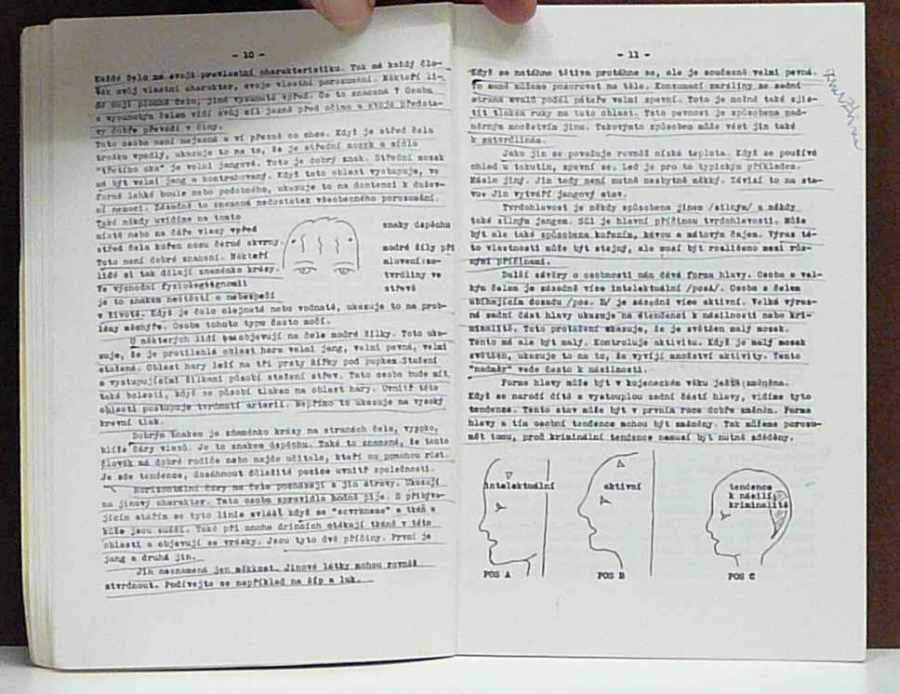 - 10 -
Každé čelo má svoji provlastní charakteristiku. Tak má každý člo-
věk svůj vlastní charakter, svoje vlastní porozumění. Někteří li-
dé mají ploché čelo, jiné vysunuté vpřed. Co to znamená ? Osoba
s vysunutým čelem vidí svůj cíl jasně před očima a svoje předsta-
vy dobře převádí v činy.
Tato osoba není nejasná a ví přesně co chce. Když je střed čela
trošku vpadlý, ukazuje to na to, že je střední mozek a sídlo
"třetího oka" je velmi jangové. Toto je dobrý znak. Střední mozek
má být velmi jang a kontrahovaný. Když tato oblast vystupuje, ve
formě lehké boule nebo podobného, ukazuje to na tendenci k dušev-
ní nemoci. Zásadně to znamená nedostatek všeobecného porozumění.
Také někdy uvidíme na tomto
místě nebo na čáře vlasy vpřed
střed čela kořen nosu černé skvrny.
Toto není dobré znamení. Někteří
lidé si tak dělají znaménko krásy.
Ve východní fyziologii
je to znakem neštěstí a nebezpečí
v životě. Když je čelo olejnaté nebo vodnaté, ukazuje to na prob-
lémy měchýře. Osoba tohoto typu často močí.
znaky úspěchu
modré žíly při
mluvení=za-
tvrdliny ve
střevě
U některých lidí se objevují na čele modré žilky. Toto uka-
zuje, že je protilehlá oblast hara velmi jang, velmi pevná, velmi
stažená. Oblast hary leží na tři prsty šířky pod pupkem. Stažení
s vystupujícími žilkami působí stažení střev. Tato osoba bude mít
také bolesti, když se působí tlakem na oblast hary. Uvnitř této
oblasti postupuje tvrdnutí arterií. Nepřímo to ukazuje na vysoký
krevní tlak.
Dobrým znakem je znaménko krásy na stranách čela, vypuklo,
blíže čáry vlasů. Je to znakem úspěchu. Také to znamená, že tento
člověk má dobré rodiče nebo najde učitele, kteří mu pomohou růst.
Je zde tendence, dosáhnout důležité pozice uvnitř společnosti.
Horizontální čáry na čele pocházejí z jin stravy. Ukazují
na jinový charakter. Tato osoba zpravidla hodně pije. S přibýva-
jícím stářím se tyto linie zvlášť když se "scvrknese" a tkáň a
kůže jsou sušší. Také při mnoha drincích otékají tkáně v této
oblasti a objevují se vrásky. Jsou tyto dvě příčiny. První je
jang a druhá jin.
Jin neznamená jen měkkost. Jinové látky mohou rovněž
stvrdnout. Podívejte se například na šíp a luk.
- 11 -
Když se natáhne tětiva protáhne se, ale je současně velmi pevná.
To samé můžeme pozorovat na těle. Konzumací zmrzliny se zadní
strana svalů podél páteře velmi zpevní. Toto je možné také zjis-
tit tlakem ruky na tuto oblast. Tato pevnost je způsobena nad-
měrným množstvím jinu. Takovýmto způsobem může vést jin také
k zatvrdlinám.
Jako jin se považuje rovněž nízká teplota. Když se používá
chlad u tekutin, zpevní se. Led je pro to typickým příkladem.
Máslo jiný. Jin tedy není nutně nezbytně měkký. Závisí to na sta-
vu. Jin vytváří jangový stav.
Tvrdohlavost je někdy způsobena jinem /silným/ a někdy
také silným jangem. Sůl je hlavní příčinou tvrdohlavosti. Může
být ale také způsobena kořením, kávou a mátovým čajem. Výraz té-
to vlastnosti může být stejný, ale musí být rozlišeno mezi růz-
nými příčinami.
Další závěry o osobnosti nám dává forma hlavy. Osoba s vel-
kým čelem je zásadně více intelektuální /posA/. Osoba s čelem
ubíhajícím dozadu /pos. B/ je zásadně více aktivní. Velká výraz-
ná zadní část hlavy ukazuje na tendenci k násilnosti nebo kri-
minalitě. Toto protažení ukazuje, že je zvětšen malý mozek.
Tento má ale být malý. Kontroluje aktivitu. Když je malý mozek
zvětšen, ukazuje to na to, že vyvíjí množství aktivity. Tento
"nadměr" vede často k násilnosti.
Forma hlavy může být v kojeneckém věku ještě změněna.
Když se narodí dítě s vystouplou zadní částí hlavy, vidíme tyto
tendence. Tento stav může být v prvním roce dobře změněn. Forma
hlavy a tím osobní tendence mohou být změněny. Tak můžeme porozu-
mět tomu, proč kriminální tendence nemusí být nutně zděděny.
intelektuální
aktivní
tendence
k násilí
kriminalitě
POS A
POS B
POS C